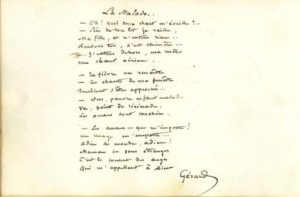 La Malade.
— Oh! quel doux chant m'éveille ?..
— Près de ton lit je veille,
Ma fille, et n'entends rien...
Rendors-toi, c'est chimère...
— J'entends dehors, ma mère
Un chant aérien.
— Ta fièvre va renaître
— Ces chants de ma fenêtre
Semblent s'être approchés.
— Dors, pauvre enfant malade
Va, point de sérénade,
Les amans sont couchés.
— Les amans — que m'importe !
Un nuage m'emporte...
Adieu le monde, adieu !
Maman ces sons étranges
C'est le concert des anges
Qui m'appellent à Dieu
Gérard